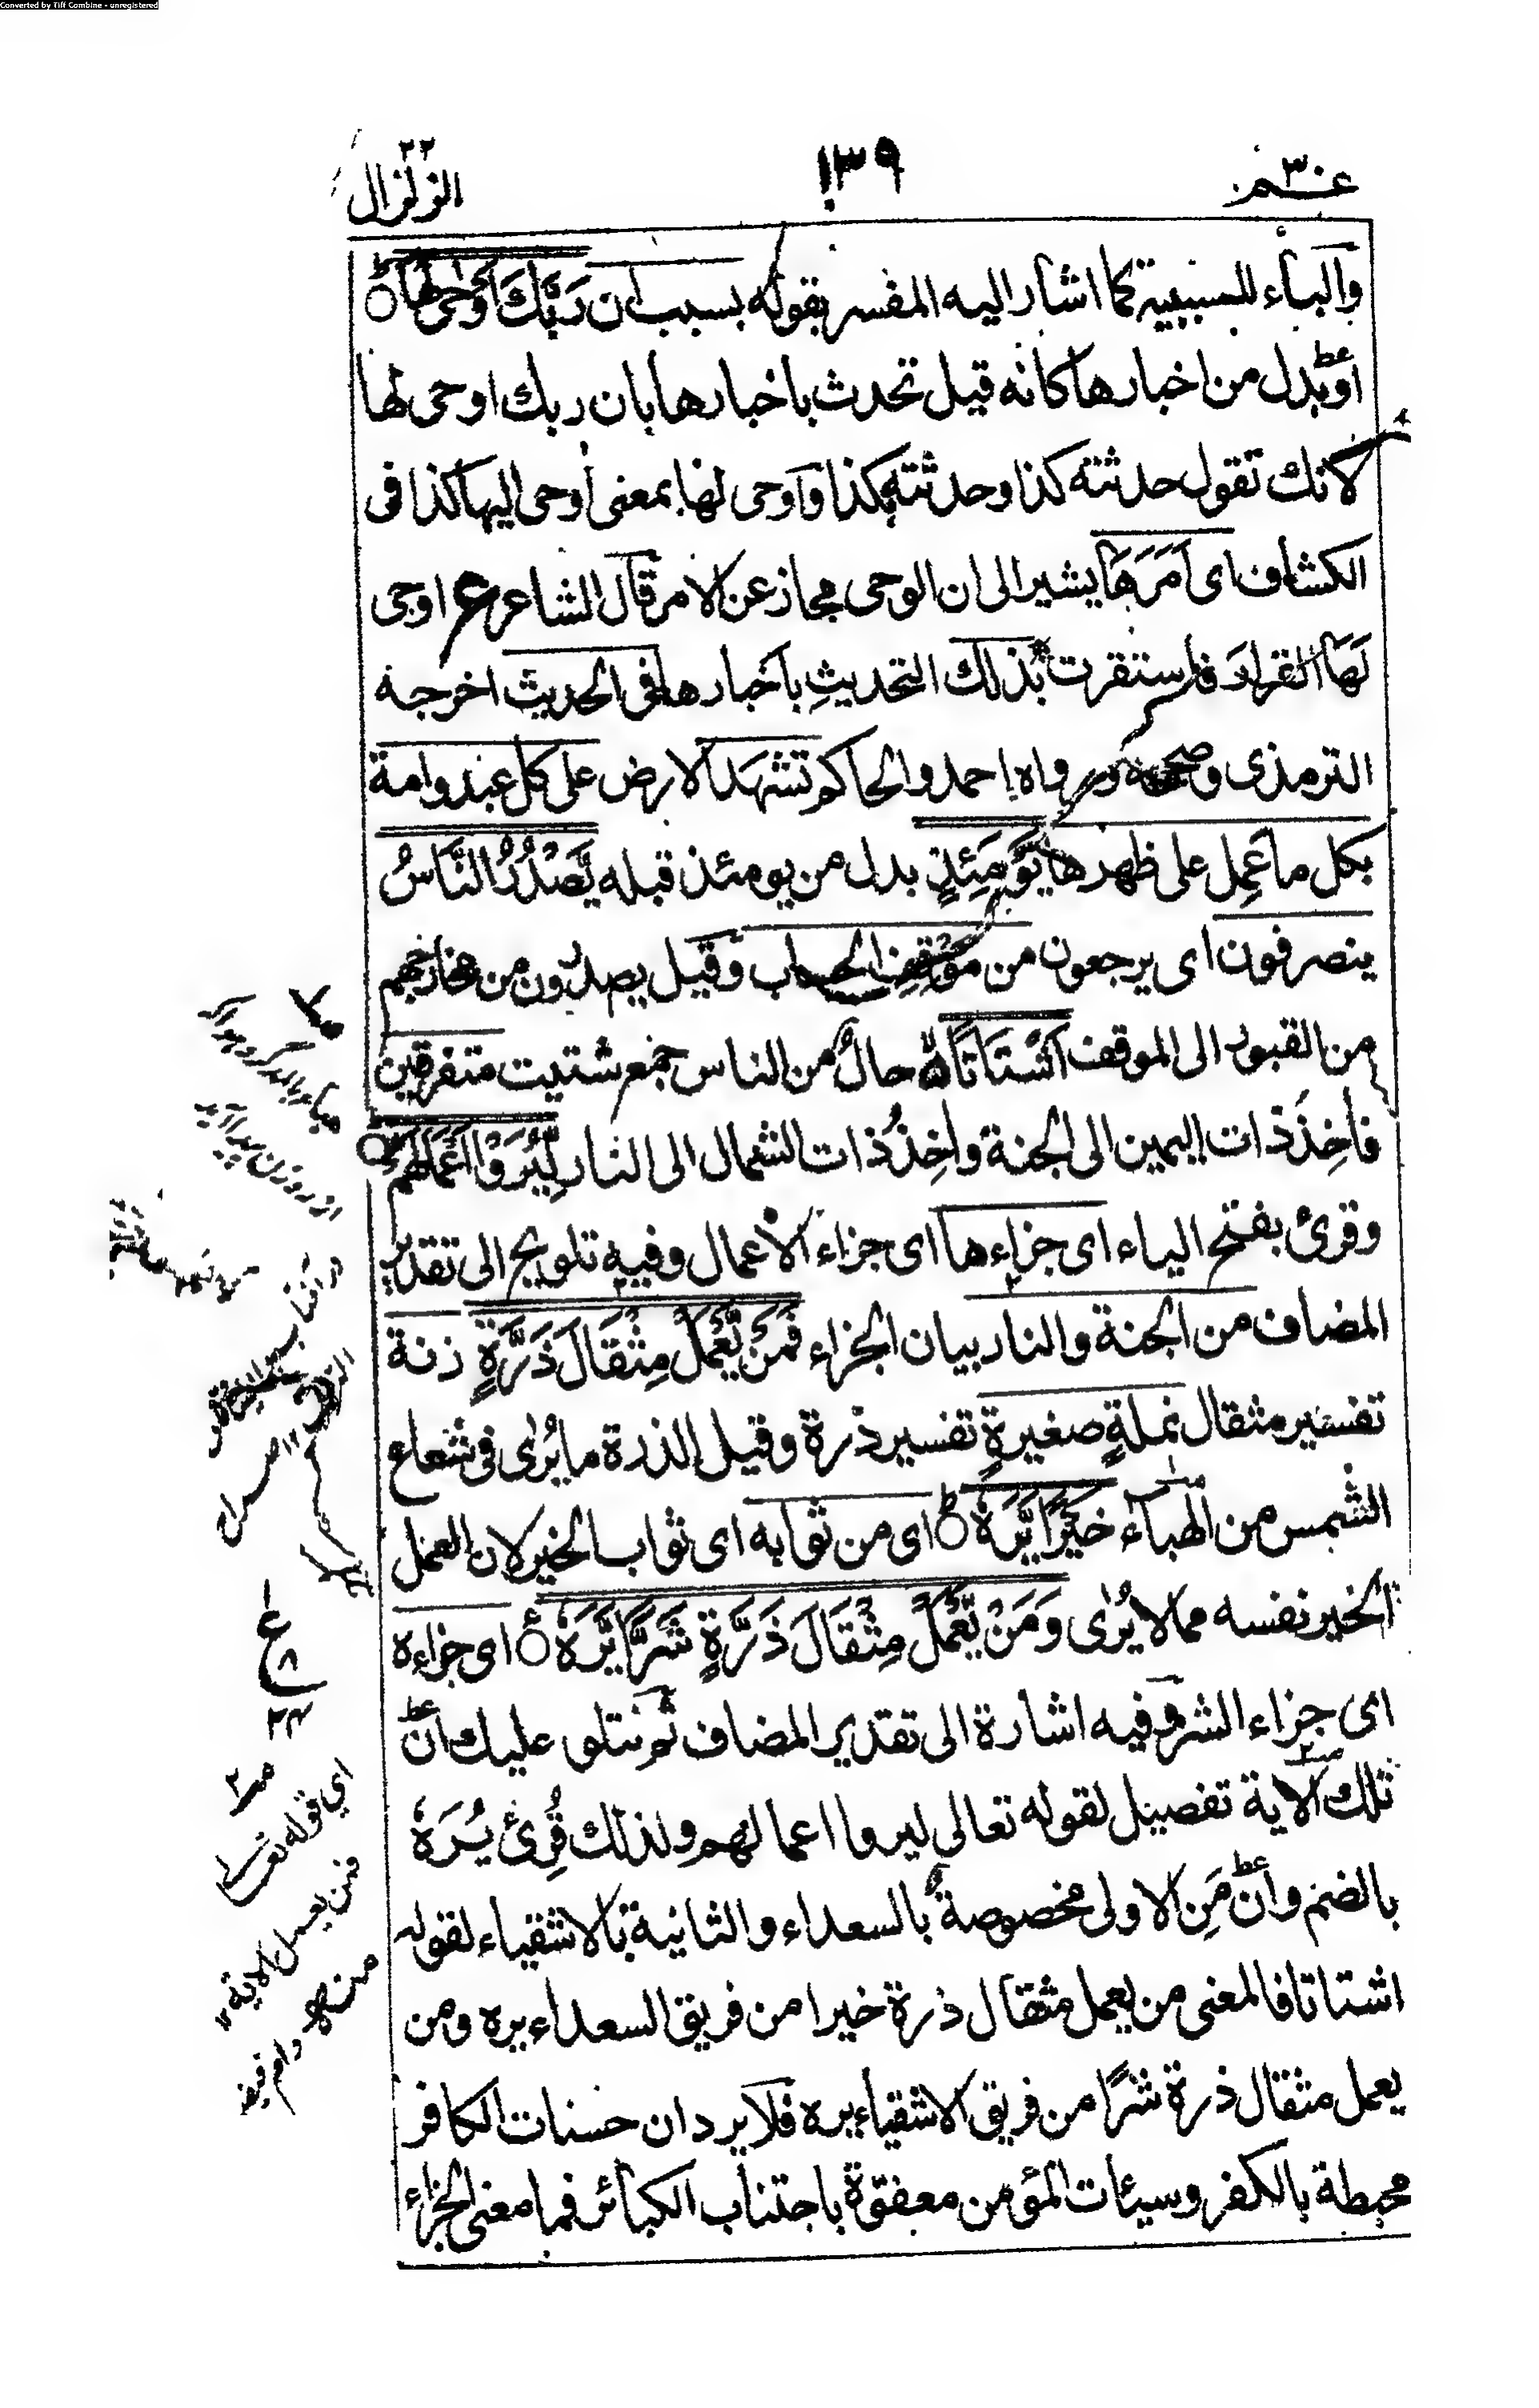 Converted by Tiff Combine - unregistered
عـم ٣٠
١٣٩
الزلزال
٢٢
والباء للسببية كما اشار اليه المفسر بقوله بسبب ان رَبَّكَ اَوْحٰى لَهَا
او بدل من اخبارها كانه قيل تحدث باخبارها بان ربك اوحى لها
لانك تقول حدثته كذا وحدثته بكذا واوحى لها بمعنى اوحى اليها كذا فى
الكشاف اى اَمَرَهَا يشير الى ان الوحى مجاز عن الامر قال الشاعر ع اوحى
لَهَا القرارَ فاستقرت بذلك التحديثِ باخبارها فى الحديث اخرجه
الترمذى وصححه ورواه احمد والحاكم تشهَد الارض على كل عبد وامة
بكل ما عَمِل على ظهرها يَوْمَئِذٍ بدل من يومئذ قبله يَّصْدُرُ النَّاسُ
ينصرفون اى يرجعون من مَوْقِفِ الحساب وقيل يصدرون من مخارجهم
من القبور الى الموقف اَشْتَاتًا حالٌ من الناس جمع شتيت متفرقين
فاٰخِذٌ ذات اليمين الى الجنة واٰخِذٌ ذات الشمال الى النار لِّيُرَوْا اَعْمَالَهُمْ
وقرئ بفتح الياء اى جزاءها اى جزاء الاعمال وفيه تلويح الى تقدير
المضاف من الجنة والنار بيان الجزاء فَمَنْ يَّعْمَلْ مِثْقَالَ ذَرَّةٍ زنة
تفسير مثقال نملةٍ صغيرةٍ تفسير ذرة وقيل الذرة ما يُرٰى فى شعاع
الشمس من الهباء خَيْرًا يَّرَهٗ اى من ثوابه اى ثواب الخير لان العمل
الخير نفسه مما لا يُرٰى وَمَنْ يَّعْمَلْ مِثْقَالَ ذَرَّةٍ شَرًّا يَّرَهٗ اى جزاءه
اى جزاء الشر وفيه اشارة الى تقدير المضاف ثم نتلو عليك انّ
تلك الاية تفصيل لقوله تعالى ليروا اعمالهم ولذلك قُرِئَ يُرَهٗ
بالضم وانّ مَنِ الاولى مخصوصة بالسعداء والثانية بالاشقياء لقوله
اشتاتا فالمعنى من يعمل مثقال ذرة خيرا من فريق السعداء يره ومن
يعمل مثقال ذرة شرًّا من فريق الاشقياء يره فلا يرد ان حسنات الكافر
محبطة بالكفر وسيئات المؤمن معفوّة باجتناب الكبائر فما معنى الجزاء
ع
٨
٢٤
اي قوله تعالى
فمن يعمل الاية ١٢
منه دام فيضه